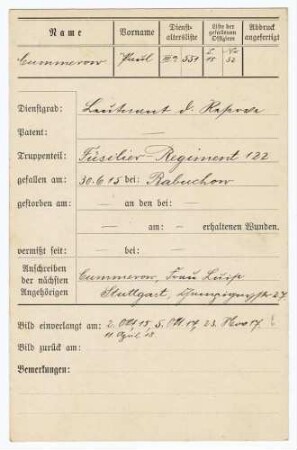 Name Vorname Dienstaltersliste Liste der gefallenen Offiziere Abdruck angefertigt
Cummerow Paul 551
Dienstgrad: Leutnant d. Reserve
Patent: —
Truppenteil: Füsilier-Regiment 122
gefallen am: 30.6.15 bei: Rabuchow
gestorben am: — an den bei: —
— am: — erhaltenen Wunden.
vermißt seit: — bei: —
Anschreiben der nächsten Angehörigen
Cummerow, Frau
Stuttgart, 27
Bild einverlangt am: 2. Okt 15, 5. Okt 17, 23. Nov 17.
11 April 18
Bild zurück am:
Bemerkungen: